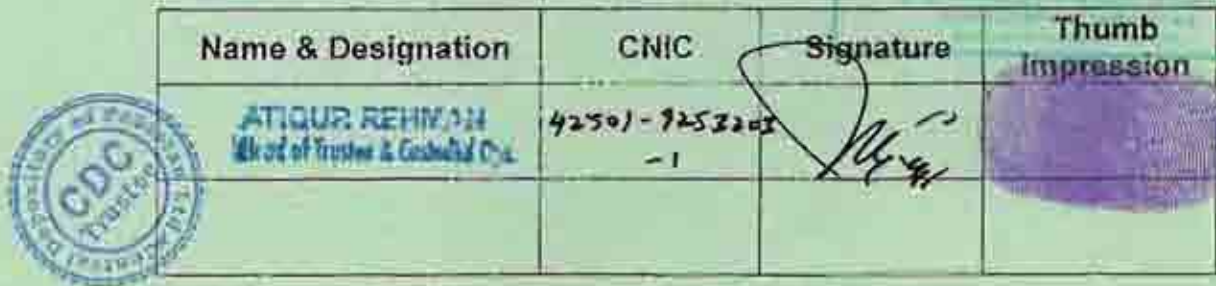 Name & Designation
CNIC
Signature
Thumb
impression
ATIQUR REHMAN
Head of Trustee & Custodial Ops.
-1
CDC
Trustee